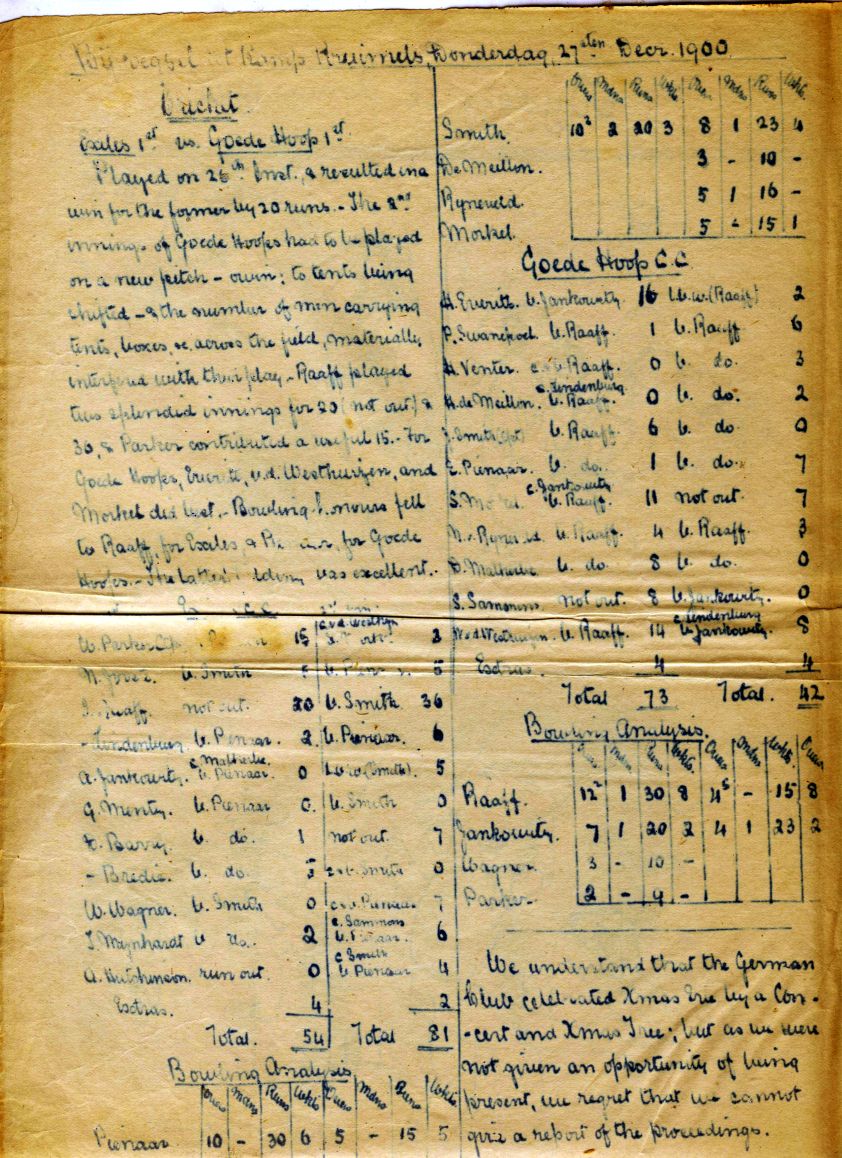 Kamp Kruimels, Donderdag, 27sten Decr. 1900
Cricket.
Exiles 1st vs. Goede Hoop 1st.
Played on 26th Inst., & resulted in a
win for the former by 20 runs. - The 2nd
innings of Goede Hoops had to be played
on a new pitch - owin; to tents being
shifted - & the number of men carrying
tents, boxes, &c. across the field, materially
interfered with their play. - Raaff played
two splendid innings for 20 (not out) &
36 & Parker contributed a useful 15. - For
Goede Hoops, Everitt, v.d. Westhuizen, and
Morkel did best. - Bowling honours fell
to Raaff, for Exiles, & for Goede
Hoops. - The latter's was excellent.
C.C.
W. Parker 15 3
b. Smith 5
Raaff. not out. 20 b. Smith 36
- Lindenburg b. Pienaar. 2 b. Pienaar. 6
A. Jankowitz. c. Malherbe. b. Pienaar. 0 l.b.w. (Smith). 5
G. b. Pienaar 0 b. Smith 0
Barry b. do. 1 not out. 7
- Bredie. b. do. c & b. Smith 0
W. Wagner. b. Smith 0 c & b. Pienaar 7
Mijnhardt b do. 2 c. Sammons b. Pienaar. 6
A. Hutchinson. run out. 0 c Smith b Pienaar 4
Extras. 4 2
Total. 54 Total 81
Bowling Analysis
Overs Mdns Runs Wkts. Overs Mdns Runs Wkts
Pienaar 10 - 30 6 5 - 15 5
Overs Mdns Runs Wkts Overs Mdns Runs Wkts.
Smith. 10² 2 20 3 8 1 23 4
De Meillon. 3 - 10 -
Ryneveld. 5 1 16 -
Morkel. 5 - 15 1
Goede Hoop C.C.
H. Everitt. b. Jankowitz 16 l.b.w. (Raaff) 2
P. Swanepoel. b. Raaff. 1 b. Raaff 6
H. Venter. c & b Raaff. 0 b. do. 3
H. de Meillon. c. Lindenburg b. Raaff. 0 b. do. 2
J. Smith (Cpt) b. Raaff. 6 b. do 0
E. Pienaar. b. do. 1 b. do. 7
S. c. Jankowitz b. Raaff. 11 not out. 7
b. Raaff. 4 b. Raaff. 3
Malherbe. b. do 8 b. do. 0
S. Sammons not out. 8 b. Jankowitz. 0
v d Westhuizen b. Raaff. 14 c Lindenburg b Jankowitz. 8
Extras. 4 4
Total 73 Total. 42
Bowling Analysis.
Overs Mdns Runs Wkts. Overs Mdns Wkts. Overs
Raaff. 12² 1 30 8 4⁵ - 15 8
Jankowitz. 7 1 20 2 4 1 23 2
Wagner 3 - 10 -
Parker 2 - 4 -
We understand that the German
Club celebrated Xmas Eve by a Con-
-cert and Xmas Tree; but as we were
not given an opportunity of being
present, we regret that we cannot
give a report of the proceedings.